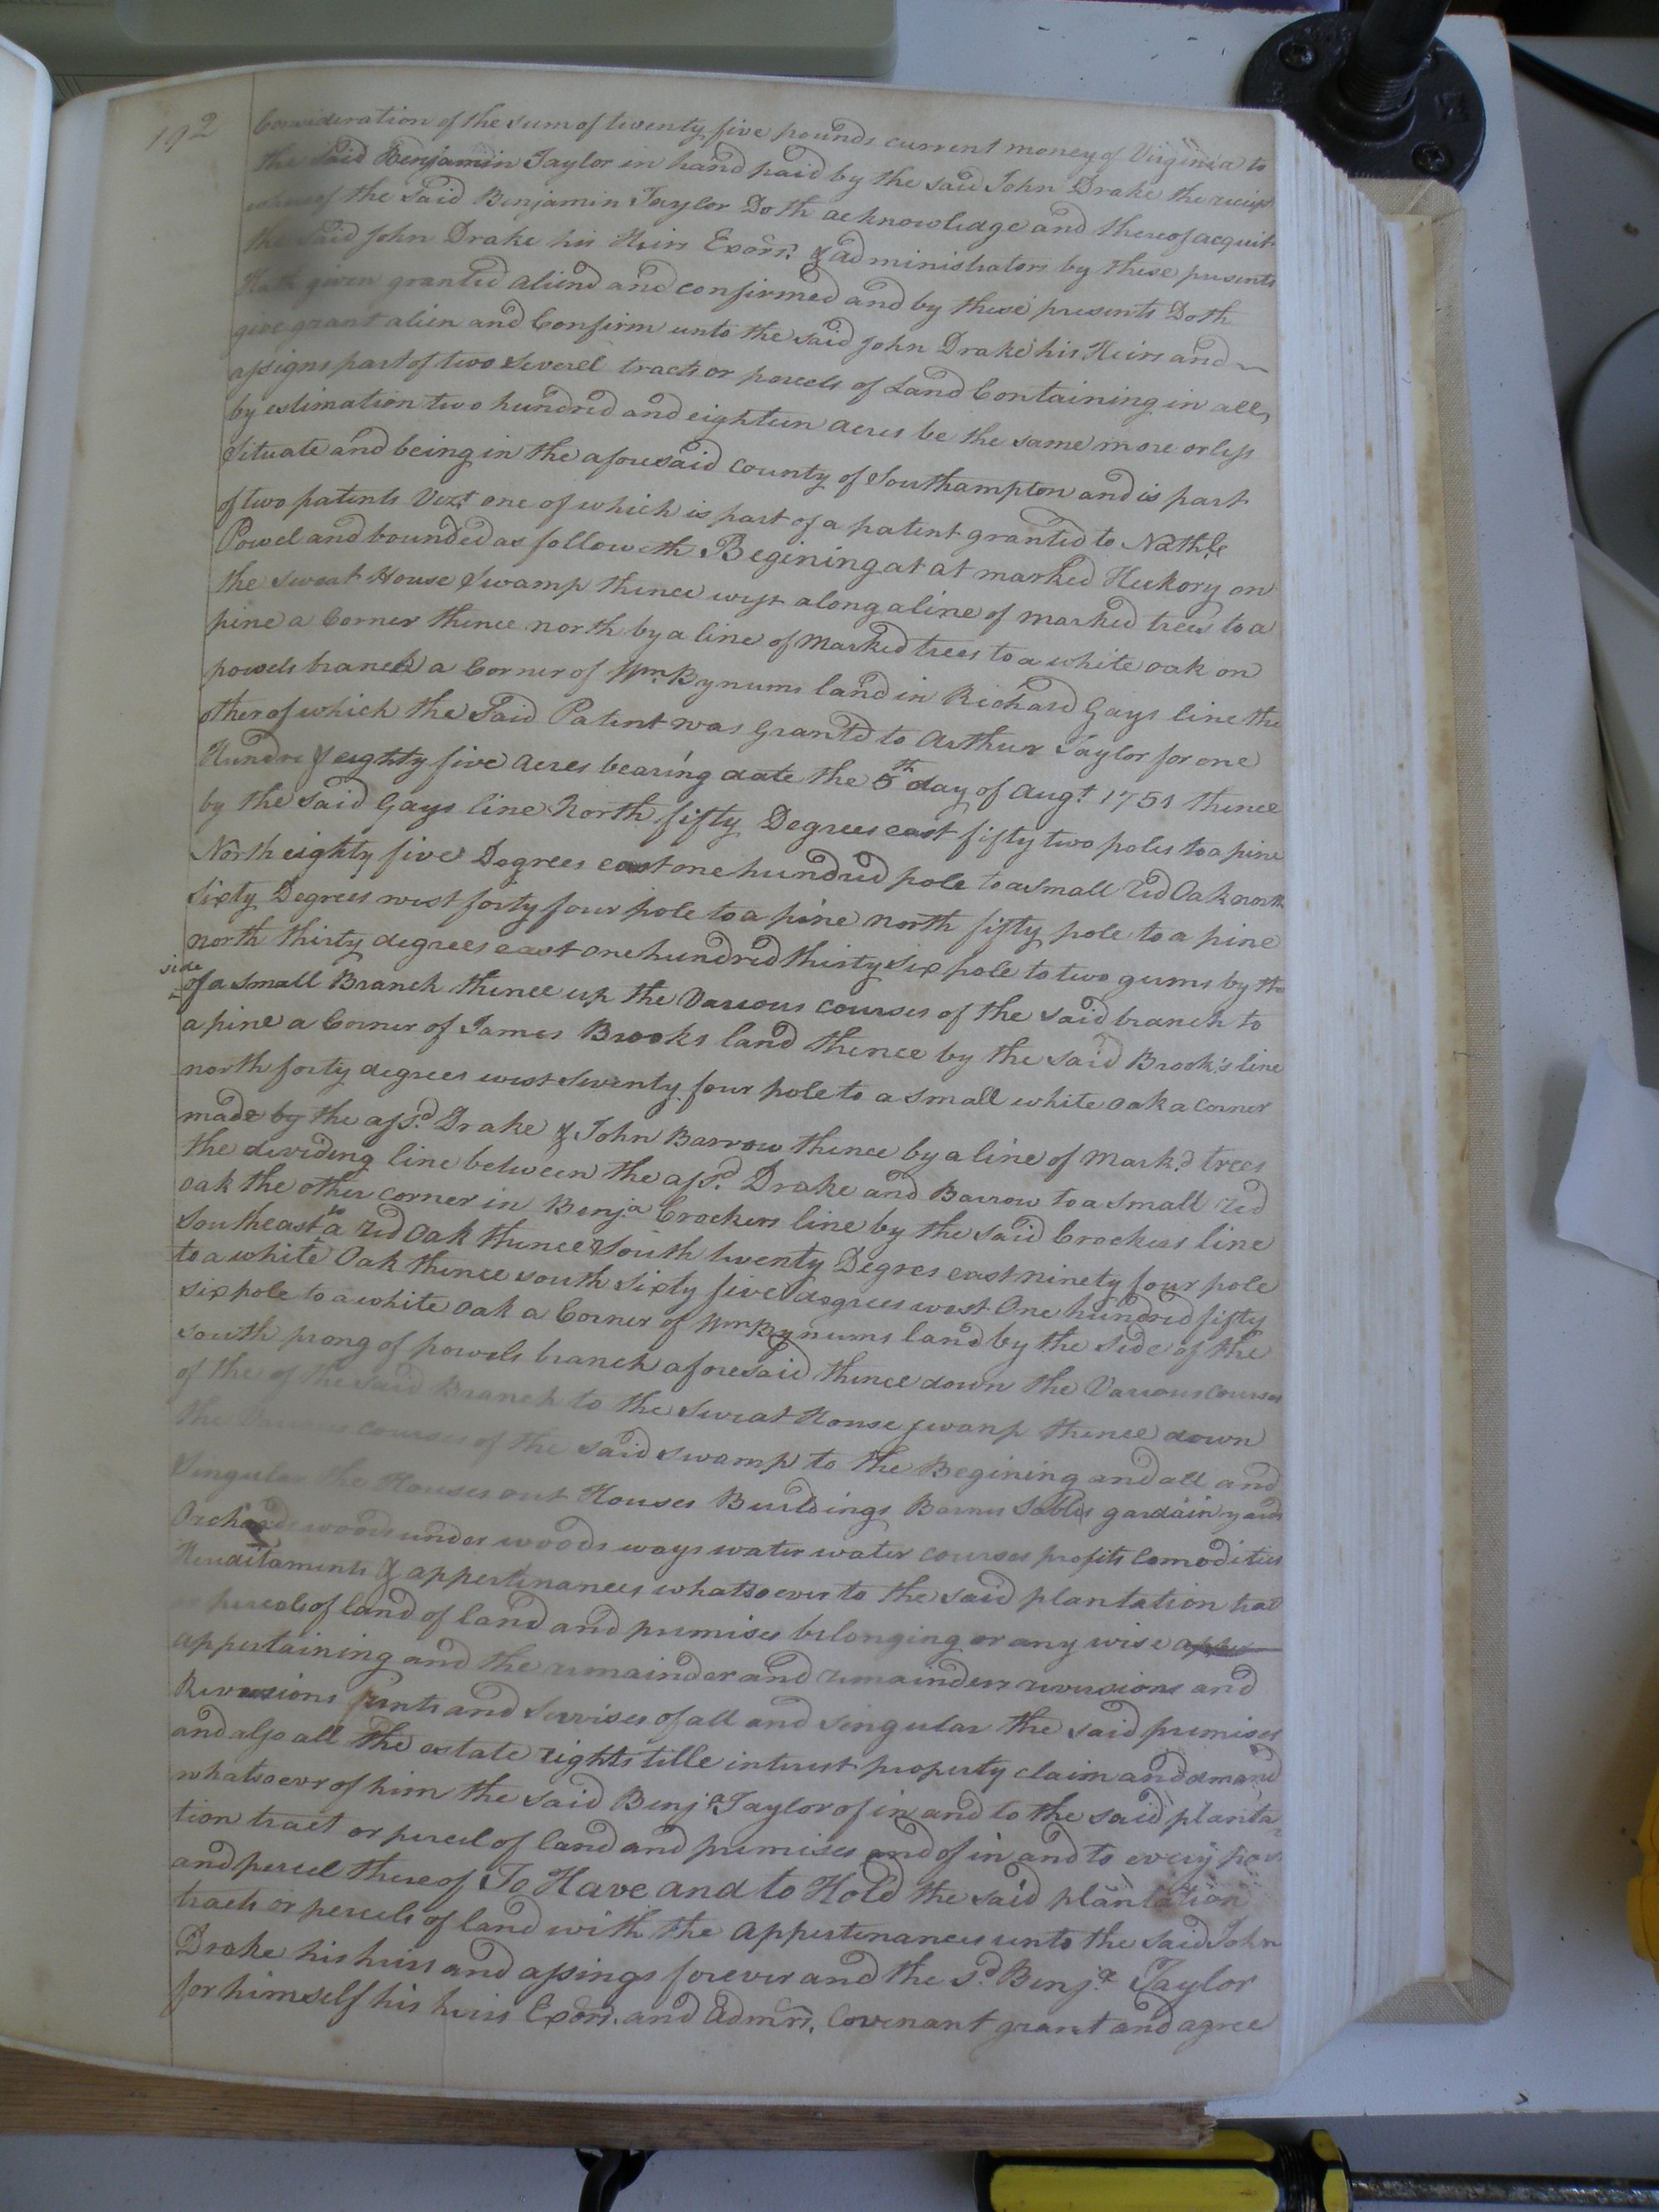 192
Consideration of the sum of twenty five pounds current money of Virginia to
the said Benjamin Taylor in hand paid by the said John Drake the receipt
whereof the said Benjamin Taylor Doth acknowledge and thereof acquit
the said John Drake his Heirs Exors. & administrators by these presents
Hath given granted aliend and confirmed and by these presents Doth
give grant alien and Confirm unto the said John Drake his Heirs and
assigns part of two severel tracts or parcels of Land Containing in all,
by estimation two hundred and eighteen acres be the same more or less
Situate and being in the aforesaid County of Southampton and is part
of two patents Vizt. one of which is part of a patent granted to Nathle.
Powel and bounded as followeth Begining at at marked Hickory on
the sweat House Swamp thence west along a line of marked trees to a
pine a Corner thence north by a line of Marked trees to a white oak on
powels branch a Corner of Wm. Bynums land in Richard Gays line the
other of which the Said Patent was Grantd to Arthur Taylor for one
Hundre & eighty five Acres bearing date the 5th day of Augt. 1751 thence
by the said Gays line North fifty Degrees east fifty two poles to a pine
North eighty five Degrees east one hundred pole to a small red Oak north
Sixty Degrees west forty four pole to a pine north fifty pole to a pine
north thirty degrees east one hundred thirty six pole to two gums by the
side
of a small Branch thence up the Various courses of the said branch to
a pine a Corner of James Brooks land thence by the said Brook's line
north forty degrees west seventy four pole to a small white oak a corner
made by the afsd. Drake & John Barrow thence by a line of Mark.d trees
the dividing line between the afsd. Drake and Barrow to a small red
oak the other corner in Benja. Crockers line by the said Crockers line
Southeast to a red Oak thence South twenty Degres east ninety four pole
to a white Oak thence south sixty five degrees west One hundred fifty
six pole to a white oak a Corner of Wm. Bynums land by the side of the
south prong of powels branch aforesaid thence down the Various courses
of the of the said Branch to the Sweat House swanp thence down
the Various courses of the said swamp to the Begining and all and
Singular the Houses out Houses Buildings Barns Sables gardain yards
Orchards woods under woods ways water water courses profits Comodities
Heruditaments & appertinances whatsoever to the said plantation trac
percels of land of land and premises belonging or any wise
appertaining and the remainder and remainders reversions and
Reversions rents and Servises of all and singular the said premises
and also all the estate rights title interest property claim and demand
whatsoevr of him the said Benja. Taylor of in and to the said planta
tion tract or percel of land and premises and of in and to every par
and percel thereof To Have and to Hold the said plantation
tracts or percels of land with the Appertenances unto the said John
Drake his heirs and assings forever and the sd. Benja. Taylor
for himself his heirs Exors. and Admrs. Covenant grant and agree